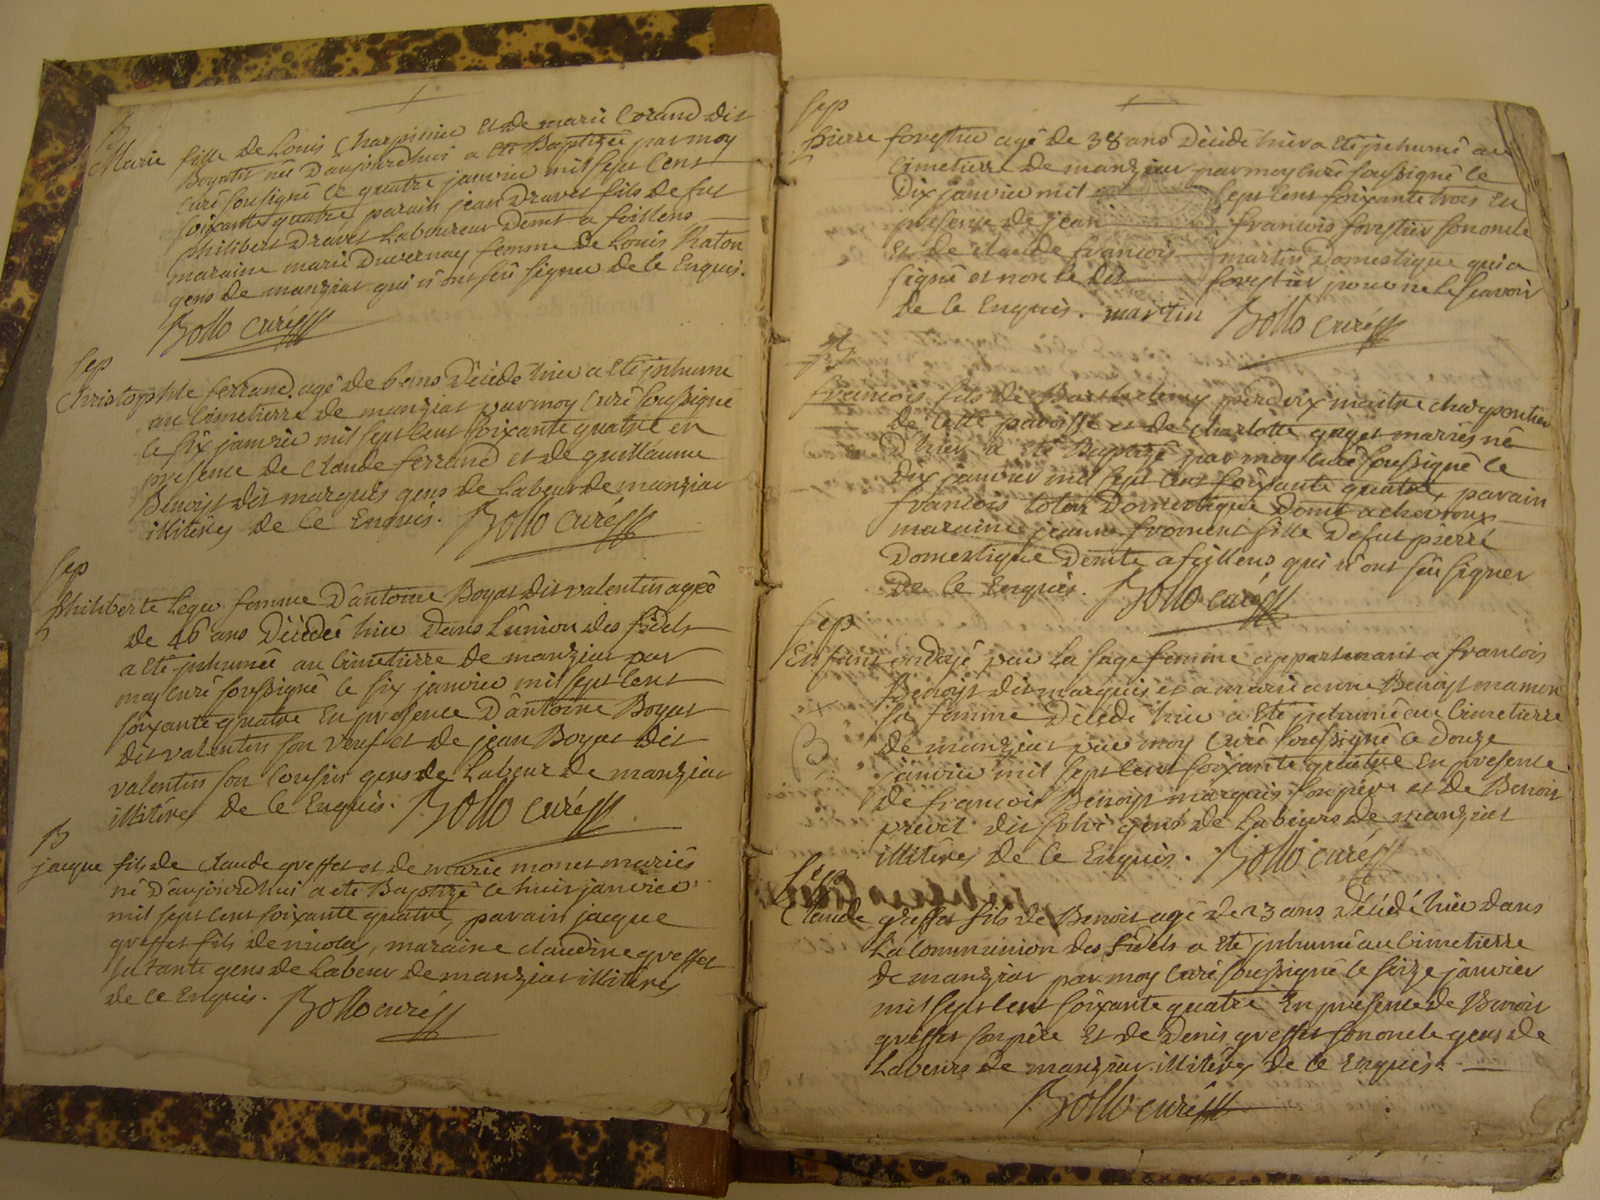 B
Marie fille de Louis Charpinie Et de marie Corand dit
Boyatit née D'aujourdhui a été Baptizée par moy
curé soussigné le quatre janvier mil sept Cent
soixante quatre, parain jean Dravet fils de fut
philibert Dravet Laboureur Demt a feillens
maraine marie Duvernay femme de Louis Raton
gens de manziat qui n'ont sçû signer de ce Enquis.
Bollo curé
sep
Christophle ferrand agé de 6 ans Décédé hier a été inhumé
au Cimetierre de manziat par moy Curé soussigné
le six janvier mil sept Cent soixante quatre en
presense de Claude ferrand et de guillaume
Benoist dit marquis gens de Labeur de manziat
illitérés de Ce Enquis. Bollo curé
sep
philiberte Lequ femme D'antoine Boyat dit valentin ageé
de 46 ans Décédeé hier Dans L'union des fidels
a été inhumeé au Cimetierre de manziat par
moy curé soussigné le six janvier mil sept Cent
soixante quatre En presence D'antoine Boyat
dit valentin son veuf et de jean Boyat dit
valentin son Cousin gens de Labeur de manziat
illitérés de Ce Enquis. Bollo curé
B
jacque fils de claude greffet et de marie monet mariés
né D'aujourdhui a été Baptizé le huit janvier
mil sept Cent soixante quatre, parain jacque
greffet fils de nicolas, maraine claudine greffet
sa tante gens de Labeur de manziat illitérés
de ce Enquis. Bollo curé
sep
pierre forestier agé de 38 ans Décédé hier a été inhumé au
Cimetierre de manziat par moy curé soussigné le
Dix janvier mil sept Cent soixante trois En
presense de jean francois forestier son oncle
Et de claude francois martin Domestique qui a
signé et non le dit forestier pour ne le sçavoir
de Ce Enquis. martin Bollo Curé
B
francois fils de Barthelemy perdrix maitre charpentier
de cette paroisse et de charlotte gaget mariés né
D'hier a été Baptizé par moy curé soussigné le
dix janvier mil sept Cent soixante quatre, parain
francois Domestique Demt a chevroux
maraine jeanne froment fille De fut pierre
Domestique Demte a feillens qui n'ont sçû signer
De Ce Enquis. Bollo curé
sep
Enfant ondoyé par La sage femme appartenant a francois
Benoist dit marquis et a marie anne Benoist mamon
sa femme Décédé hier a été inhumé au Cimetierre
de manziat par moy Curé soussigné Ce Douze
janvier mil sept Cent soixante quatre En presense
de francois Benoist marquis son pere et de Benoit
previt dit gens de Labeurs de manziat
illitérés de Ce Enquis. Bollo curé
sep
Claude greffet fils de Benoit agé de 23 ans Décédé hier dans
La Communion des fidels a été inhumé au Cimetierre
de manziat par moy Curé soussigné le seize janvier
mil sept Cent soixante quatre En presense de Benoit
greffet son pere Et de Denis greffet son oncle gens de
Labeurs de manziat illitérés de Ce Enquis.
Bollo curé